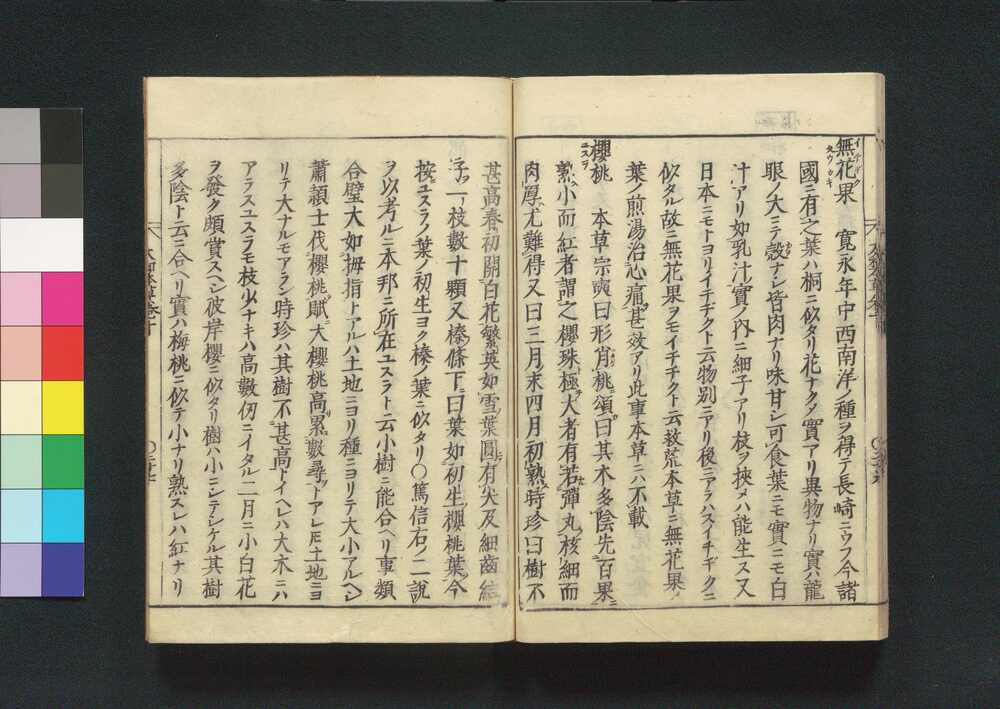 無花果 寛永年中西南洋ノ種ヲ得テ長崎ニウフ今諸
國ニ有之葉ハ桐ニ似タリ花ナクメ實アリ異物ナリ實ハ龍
眼ノ大ニテ殻ナシ皆肉ナリ味甘シ可食葉ニモ實ニモ白
汁アリ如乳汁實ノ内ニ細子アリ枝ヲ挾メハ能生ス又
日本ニモトヨリイチヂクト云物別ニアリ後ニアラハスイチヂクニ
似タル故ニ無花果ヲモイチヂクト云救荒本草ニ無花果ノ
葉ノ煎湯治心痛甚效アリ此事本草ニハ不載
櫻桃 本草宗奭曰形肖桃頌曰其木多陰先百果ニ
熟小而紅者謂之櫻珠極大者有若彈丸核細而
肉厚尤難得又曰三月末四月初熟時珍曰樹不
甚高春初開白花繁英如雪葉圓有尖及細齒結
子一枝數十顆又榛條下曰葉如初生櫻桃葉今
按ユスラノ葉ノ初生ヨク榛ノ葉ニ似タリ〇篤信右ノ二説
ヲ以考ルニ本邦ニ所在ユスラト云小樹ニ能合ヘリ事類
合璧大如拇指トアルハ土地ニヨリ種ニヨリテ大小アルヘシ
蕭頴士伐櫻桃賦ニ大櫻桃高累數尋トアレ𪜈土地ニヨ
リテ大ナルモアラン時珍ハ其樹不甚高トイヘレハ大木ニハ
アラスユスラモ枝少ナキハ高數仞ニイタル二月ニ小白花
ヲ發ク頗賞スヘシ彼岸櫻ニ似タリ樹ハ小ニシテシケル其樹
多陰ト云ニ合ヘリ實ハ梅桃ニ似テ小ナリ熟スレハ紅ナリ